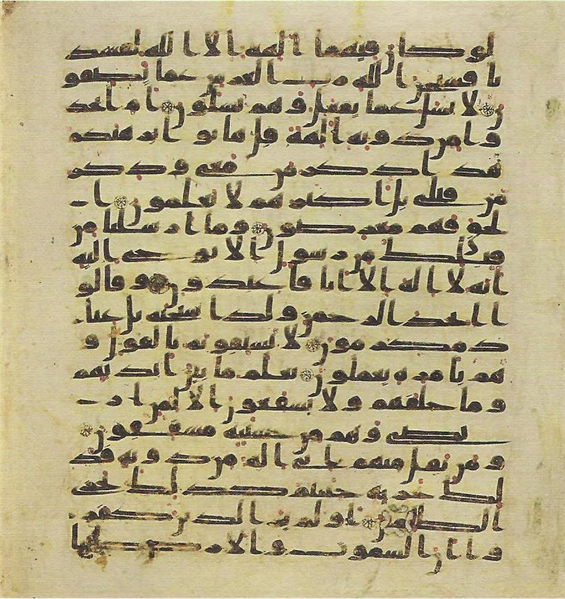 لو كان فيهما الهة الا الله لفسد
تا فسبحن الله رب العرش عما يصفو
ن لا يسئل عما يفعل وهم يسئلون ام اتخذ
وا من دونه الهة قل هاتوا برهنكم
هذا ذكر من معى وذكر
من قبلى بل اكثرهم لا يعلمون ا
لحق فهم معرضون وما ارسلنا من
قبلك من رسول الا نوحى اليه
انه لا اله الا انا فاعبدون وقالو
ا اتخذ الرحمن ولدا سبحنه بل عبا
د مكرمون لا يسبقونه بالقول و
هم بامره يعملون يعلم ما بين ايديهم
وما خلفهم ولا يشفعون الا لمن ار
تضى وهم من خشيته مشفقون
ومن يقل منهم انى اله من دونه فذ
لك نجزيه جهنم كذلك نجزى
الظلمين اولم ير الذين كفر
وا ان السموت والارض كانتا